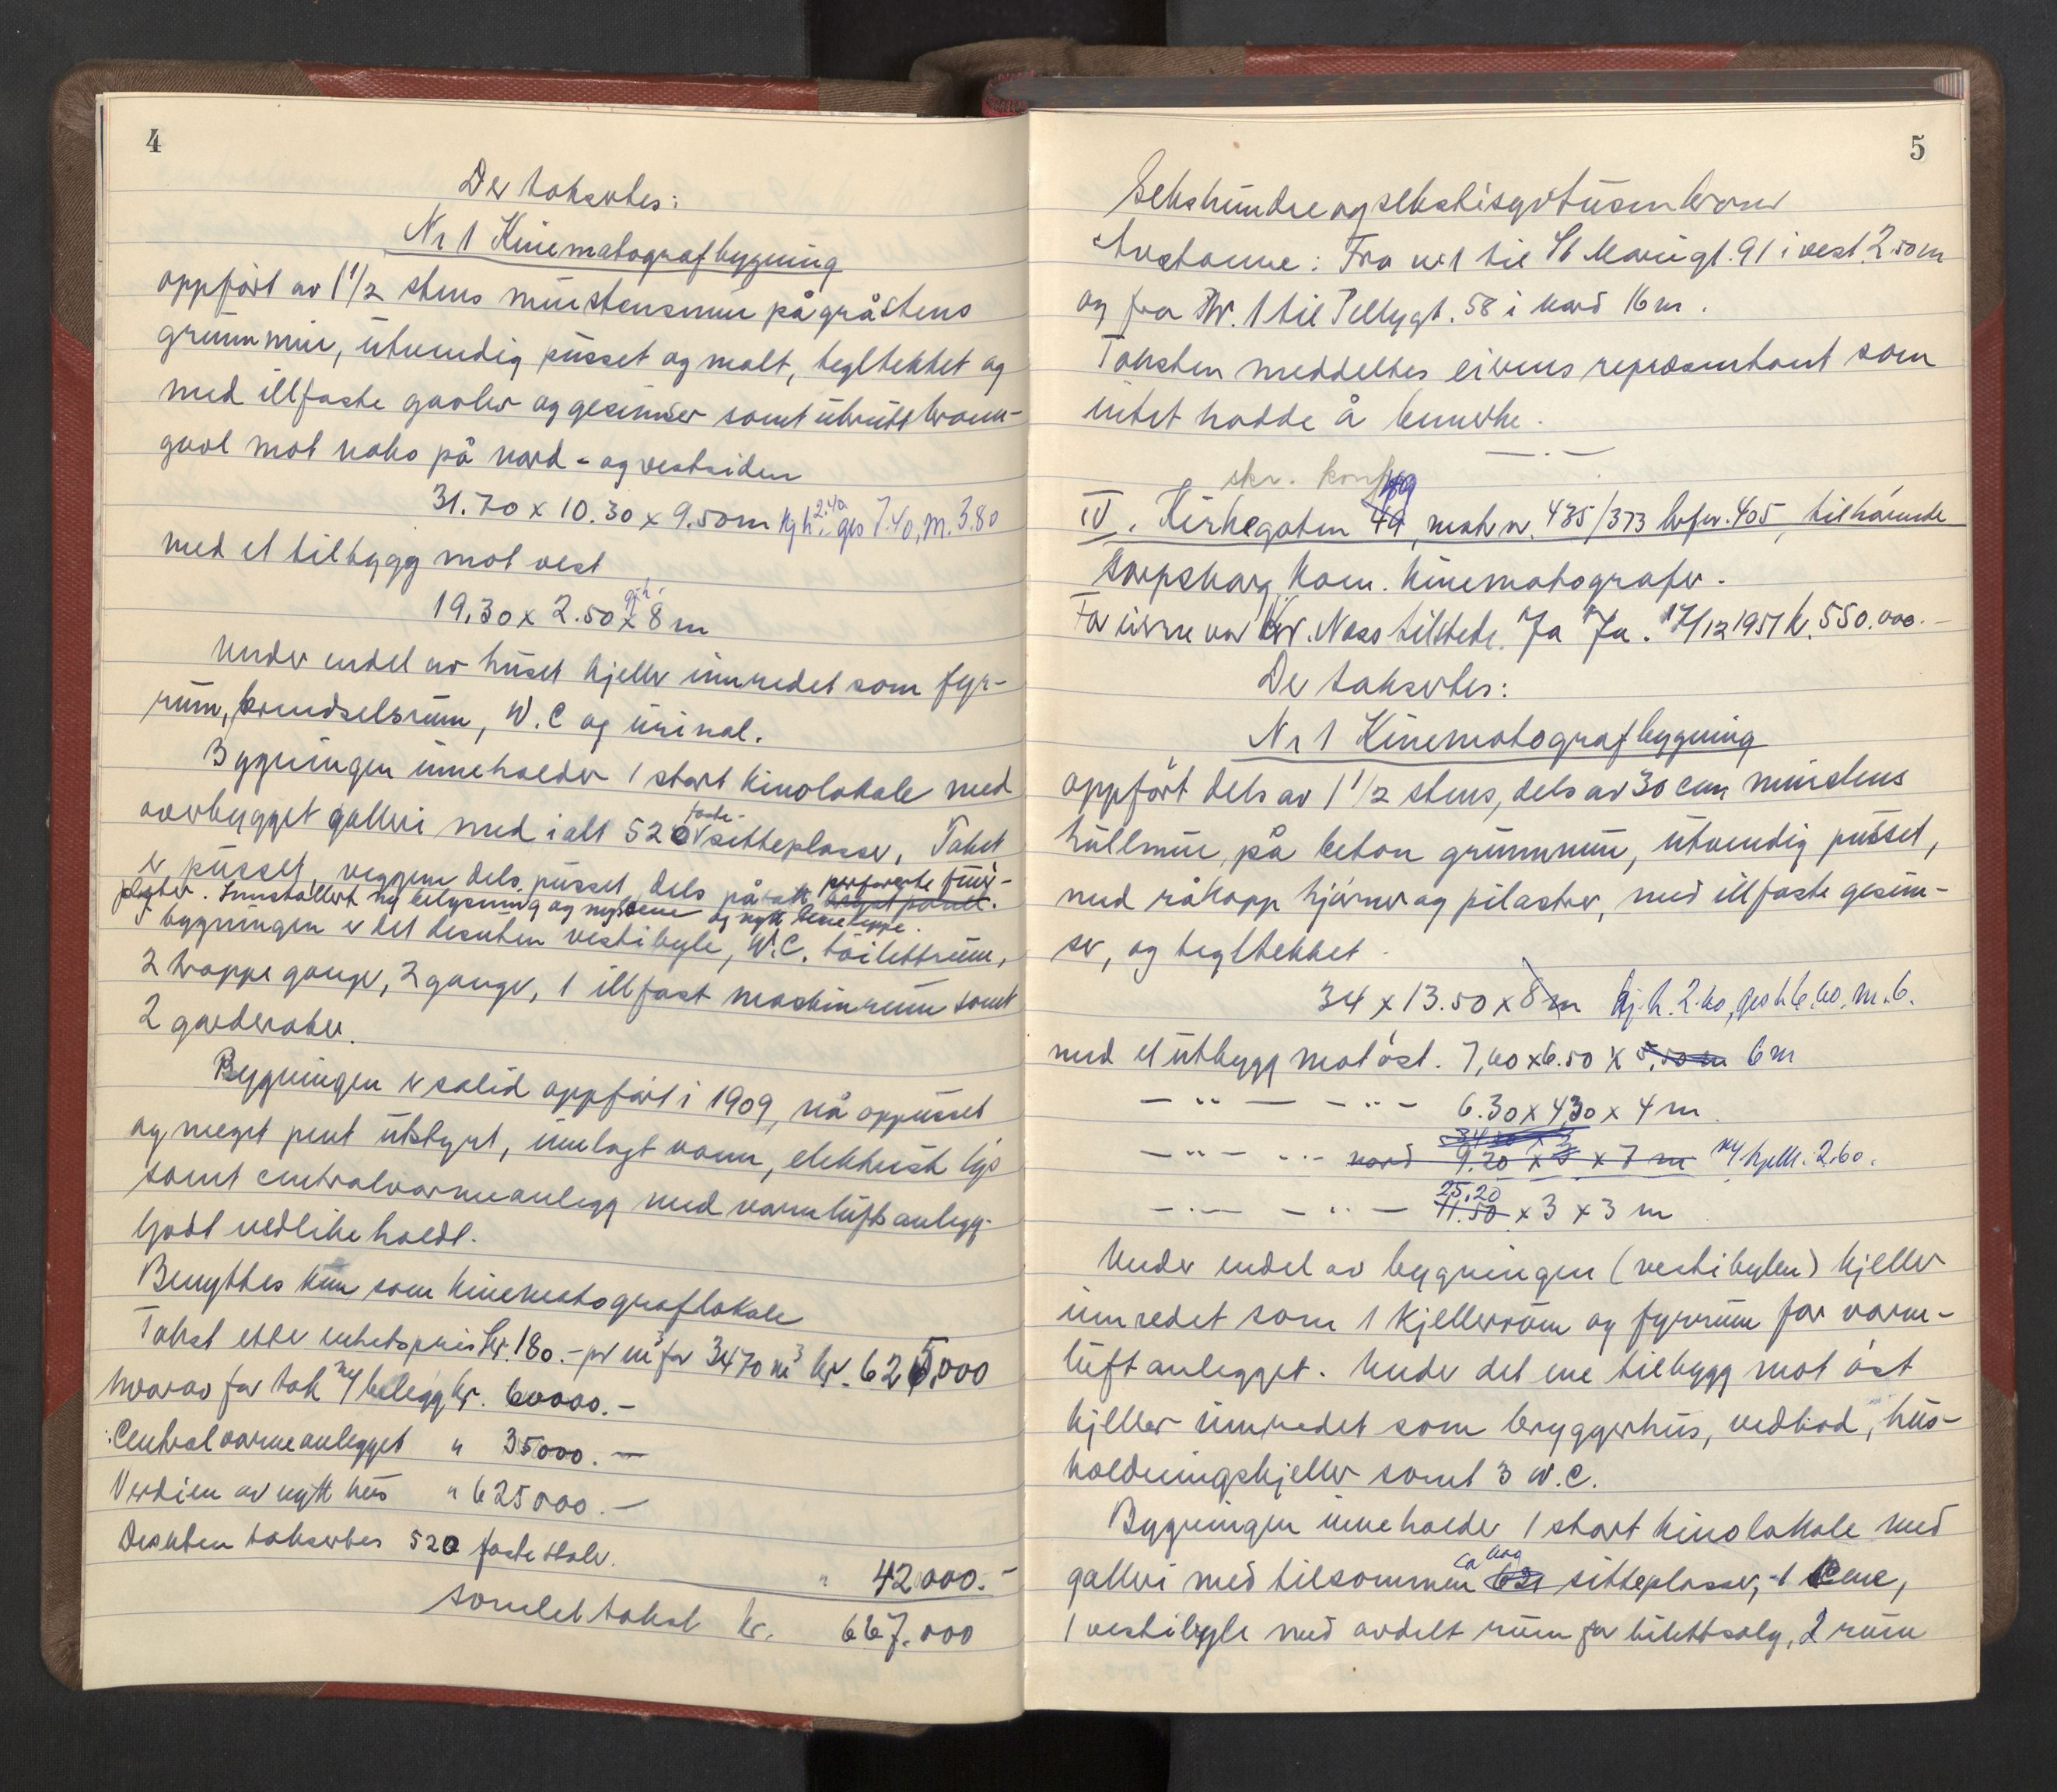 4
De taksertes:
Nr 1 Kinematografbygning
oppført av 1 1/2 stens murstensmur på gråstens
grunnmur, utvendig pusset og malt, tegltekket og
med illfaste gavler og gesimser samt utbrutt brann-
gavl mot nabo på nord- og vestsiden
31.70 x 10.30 x 9.50m kj h. 2.40 ges 7.40, m. 3.80
med et tilbygg mot vest
19.30 x 2.50 x 8 m
Under endel av huset kjeller innredet som fyr-
rum, brendselsrum, W.C og urinal.
Bygningen inneholder 1 stort kinolokale med
overbygget galleri med ialt 520 faste sitteplasser. Taket
er pusset, veggene dels pusset, dels på perforerte finér-
plater. Innstallert ny belysning og ny scene og nytt sceneteppe.
I bygningen er det desuten vestibyle, W.C. toilettrum,
2 trappe gange, 2 gange, 1 illfast maskinrum samt
2 garderober.
Bygningen er solid oppført i 1909, nå oppusset
og meget pent utstyrt, innlagt vann, elektrisk lys
samt centralvarmeanlegg med varmluftsanlegg.
Godt vedlikeholdt.
Benyttes kun som kinematograflokale
Takst etter enhetspris kr. 180.- pr m³ for 3470 m³ kr. 625.000
hvorav for tak m/ belegg kr. 60000.-
: Centralvarmeanlegget " 35000.-
Verdien av nytt hus " 625000.-
Desuten taksertes 520 faste stoler.
" 42000.-
Samlet takst kr. 667.000
5
Sekshundreogsekstisyvtusen kroner
Avstanne: Fra nr 1 til St Mariegt. 91 i vest 2.50m
og fra Nr. 1 til Pellygt. 58 i nord 16 m.
Taksten meddeltes eierens representant som
intet hadde å bemerke.
skr. konf
IV. Kirkegaten 49, matr nr. 435/373 brfnr. 405, tilhørende
Sarpsborg kom. kinematografer.
For eierne var Kr. Næss tilstede. Ja Ja. 17/12 1951 k. 550.000.-
De taksertes:
Nr 1 Kinematografbygning
oppført dels av 1 1/2 stens, dels av 30 cm murstens
hullmur, på betong grunnmur, utvendig pusset,
med råkopp hjørner og pilastrer, med illfaste gesim-
ser, og tegltekket.
34 x 13.50 x 8 m kj. h. 2.60, ges h 6.60, m. 6.
med et utbygg mot øst. 7,60 x 6.50 x 5,50 m 6m
— " — — " — 6.30 x 4,30 x 4 m.
— " — — " — nord 9.20 x 3 x 7 m m/ kjell. 2.60.
— " — — " — 25.20 11.50 x 3 x 3 m
Under endel av bygningen (vestibylen) kjeller
innredet som 1 kjellerrom og fyrrum for varm-
luftanlegget. Under det ene tilbygg mot øst
kjeller innredet som bryggerhus, vedbod, hus-
holdningskjeller samt 3 W.C.
Bygningen inneholder 1 stort kinolokale med
galleri med tilsammen ca 600 621 sitteplasser, 1 scene,
1 vestibyle med avdelt rum for billettsalg, 2 rum